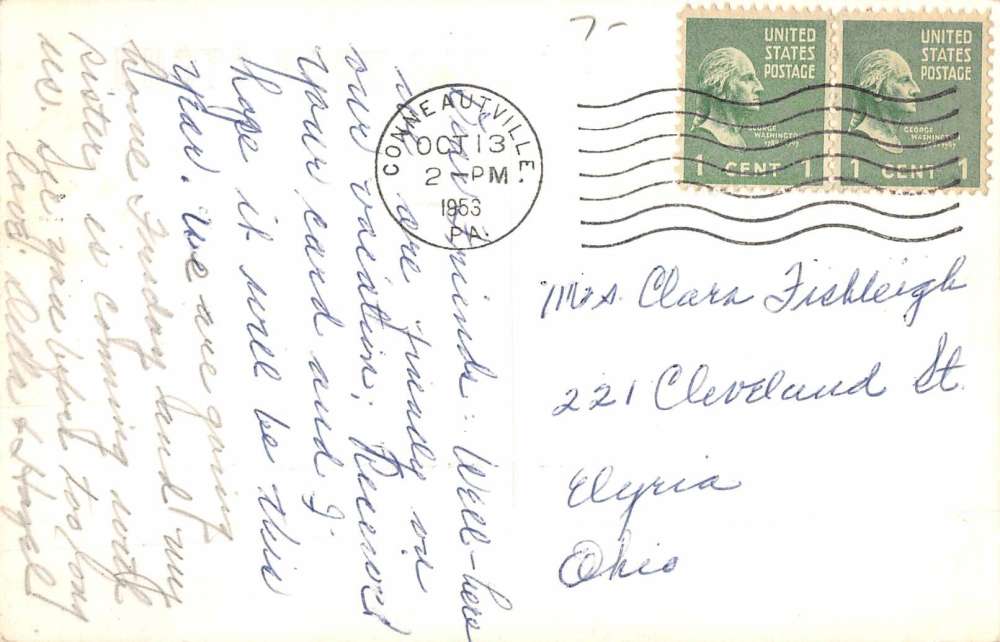 7-
UNITED
STATES
POSTAGE
GEORGE
WASHINGTON
1789-1797
1 CENT 1
UNITED
STATES
POSTAGE
GEORGE
WASHINGTON
1789-1797
1 CENT 1
CONNEAUTVILLE.
OCT 13
2 - PM
1953
PA.
Dear Friends: Well-here
we are finally on
our vacation; Received
your card and I
hope it will be this
year. We are going
home Friday and my
sister is coming with
us. See you before too long
Love.
& Hazel
Mrs. Clara Fishleigh
221 Cleveland St.
Elyria
Ohio